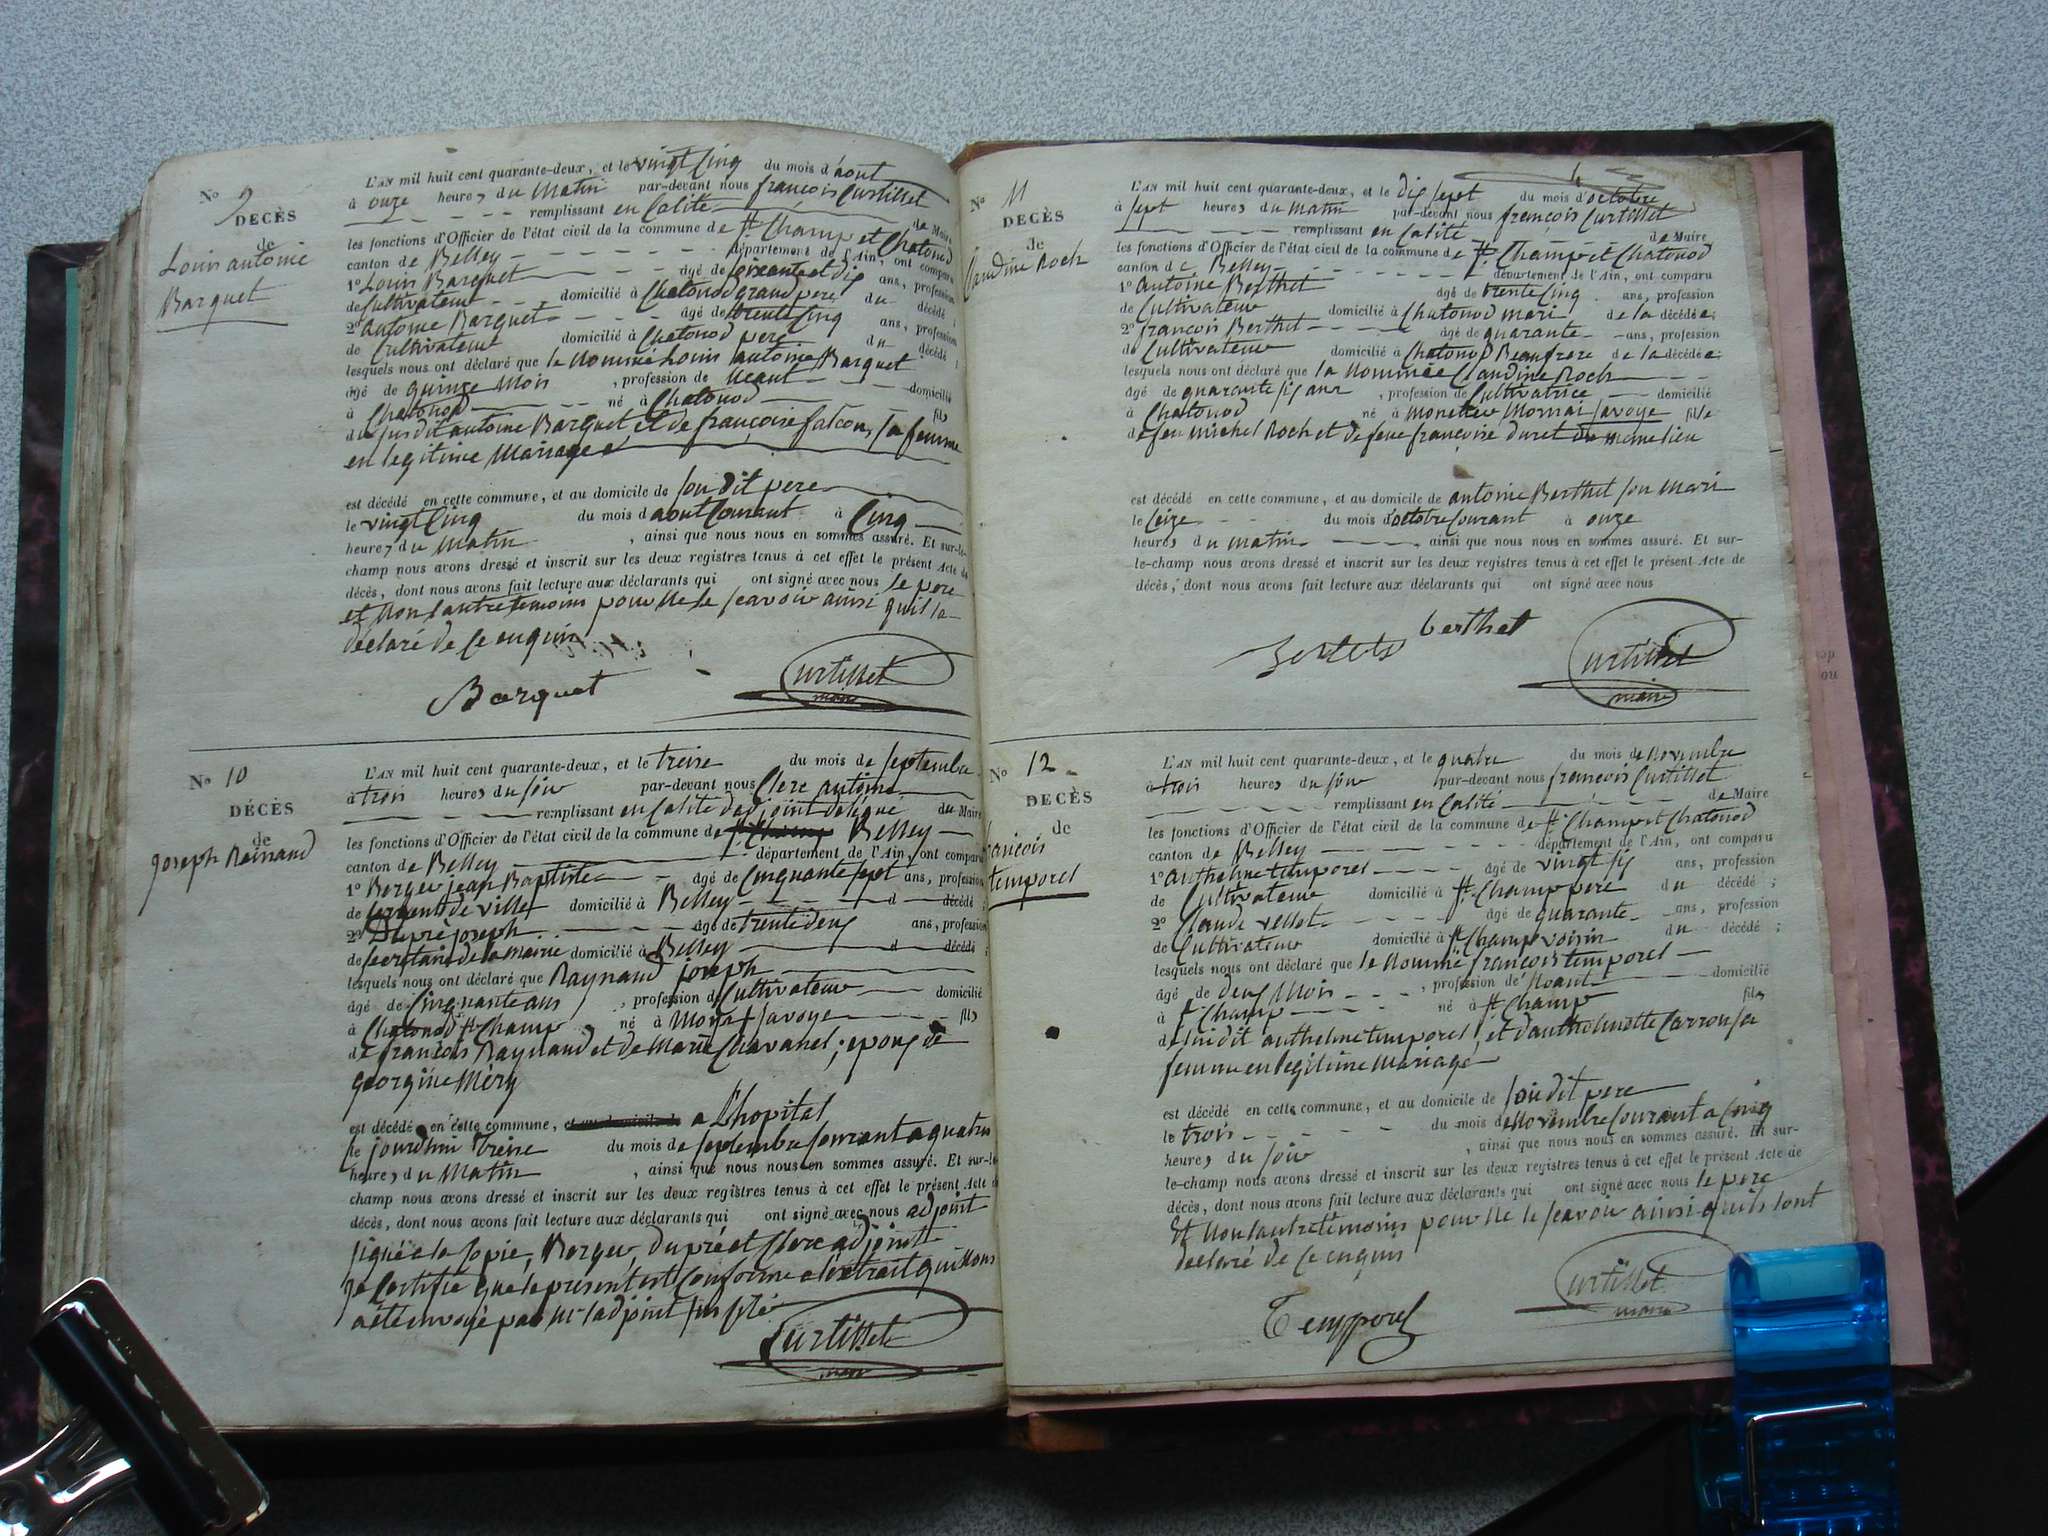 No 9
DECÈS
de
Louis antoine
Barquet
L'AN mil huit cent quarante-deux, et le vingt cinq du mois d'aout
à onze heures du Matin par-devant nous françois Curtillet
remplissant en Calité de Maire
les fonctions d'Officier de l'état civil de la commune de St Champ et Chatonod
canton de Belley département de l'Ain, ont comparu
1o Louis Barquet âgé de soixante et dix ans, profession
de Cultivateur domicilié à Chatonod grand pere du décédé ;
2o antoine Barquet âgé de trente Cinq ans, profession
de Cultivateur domicilié à Chatonod pere du décédé ;
lesquels nous ont déclaré que le Nommé Louis antoine Barquet
âgé de quinze Mois , profession de Neant domicilié
à Chatonod né à Chatonod fils
du susdit antoine Barquet et de françoise falcon, sa femme
en legitime Mariage
est décédé en cette commune, et au domicile de son dit pere
le vingt Cinq du mois d'aout Courant à Cinq
heures du Matin , ainsi que nous nous en sommes assuré. Et sur-le-
champ nous avons dressé et inscrit sur les deux registres tenus à cet effet le présent Acte de
décès, dont nous avons fait lecture aux déclarants qui ont signé avec nous le pere
et Non l'autre temoins pour Ne le scavoir ainsi quil la
déclaré de ce enquis
Barquet Curtillet
maire
No 10
DÉCÈS
de
Joseph Rainaud
L'AN mil huit cent quarante-deux, et le treise du mois de septembre
à trois heures du soir par-devant nous Clerc antoine
remplissant en Calité d'adjoint délégué du Maire
les fonctions d'Officier de l'état civil de la commune de St Champ Belley
canton de Belley département de l'Ain, ont comparu
1o Berger jean Baptiste âgé de Cinquante sept ans, profession
de sergent de ville domicilié à Belley d décédé ;
2o Dupré joseph âgé de trente deux ans, profession
de secretaire de la mairie domicilié à Belley d décédé ;
lesquels nous ont déclaré que Raynaud joseph
âgé de Cinquante ans , profession de Cultivateur domicilié
à Chatonod St Champ né à Savoye fils
de françois Raynaud et de Marie Chavanel ; epoux de
georgine Méry
est décédé en cette commune, et au domicile de a L'hopital
le jourdhui treise du mois de septembre Courant a quatre
heures du Matin , ainsi que nous nous en sommes assuré. Et sur-le-
champ nous avons dressé et inscrit sur les deux registres tenus à cet effet le présent Acte de
décès, dont nous avons fait lecture aux déclarants qui ont signé avec nous adjoint
signé a la Copie, Berger, Dupré et Clerc adjoint
Je Certifie que le present est Conforme a l'extrait qui Nous
a été envoyé par Mr l'adjoint sus
Curtillet
maire
No 11
DÉCÈS
de
Claudine Roch
L'AN mil huit cent quarante-deux, et le dix sept du mois d'octobre
à sept heures du Matin par-devant nous françois Curtillet
remplissant en Calité de Maire
les fonctions d'Officier de l'état civil de la commune de St Champ et Chatonod
canton de Belley département de l'Ain, ont comparu
1o antoine Berthet âgé de trente Cinq ans, profession
de Cultivateur domicilié à Chatonod mari de la décédée ;
2o françois Berthet âgé de quarante ans, profession
de Cultivateur domicilié à Chatonod Beaufrere de la décédée ;
lesquels nous ont déclaré que la Nommée Claudine Roch
âgé de quarante six ans , profession de Cultivatrice domicilié
à Chatonod né à Savoye fille
de feu Michel Roch et de feue françoise duret du meme lieu
est décédé en cette commune, et au domicile de antoine Berthet son Mari
le seize du mois d'octobre Courant à onze
heures du matin , ainsi que nous nous en sommes assuré. Et sur-
le-champ nous avons dressé et inscrit sur les deux registres tenus à cet effet le présent Acte de
décès, dont nous avons fait lecture aux déclarants qui ont signé avec nous
berthet Curtillet
maire
No 12
DECÈS
de
françois
temporel
L'AN mil huit cent quarante-deux, et le quatre du mois de Novembre
à trois heures du soir par-devant nous françois Curtillet
remplissant en Calité de Maire
les fonctions d'Officier de l'état civil de la commune de St Champ et Chatonod
canton de Belley département de l'Ain, ont comparu
1o anthelme temporel âgé de vingt six ans, profession
de Cultivateur domicilié à St Champ pere du décédé ;
2o Claude vellet âgé de quarante ans, profession
de Cultivateur domicilié à St Champ voisin du décédé ;
lesquels nous ont déclaré que le Nommé françois temporel
âgé de deux Mois , profession de Neant domicilié
à St Champ né à St Champ fils
de susdit anthelme temporel, et d'anthelmette Carron sa
femme en legitime Mariage
est décédé en cette commune, et au domicile de son dit pere
le trois du mois de Novembre Courant a Cinq
heures du soir , ainsi que nous nous en sommes assuré. Et sur-
le-champ nous avons dressé et inscrit sur les deux registres tenus à cet effet le présent Acte de
décès, dont nous avons fait lecture aux déclarants qui ont signé avec nous le pere
et Non l'autre temoins pour Ne le scavoir ainsi quils lont
declaré de ce enquis
Temporel Curtillet
maire